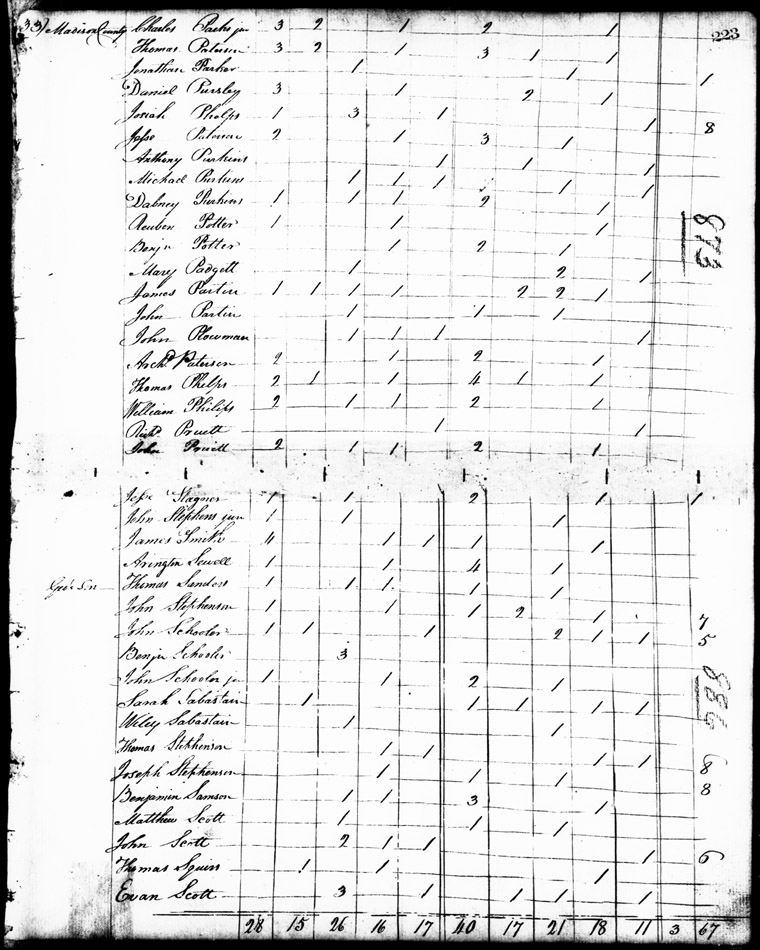 33) Madison County Charles Parks jun 3 2 1 2 1 223
Thomas Paterson 3 2 1 3 1 1
Jonathan Parker 1 1
Daniel Pursley 3 1 2 1 1
Josiah Phelps 1 3 1 1
Jesse Paterson 2 1 3 1 8
Anthony Purkins 1 1 1
Michael Purkins 1 1 1 1 1
Dabney Purkins 1 1 1 2 1
Reuben Potter 1 1 1
Benja Potter 1 2 1
Mary Padgett 1 2 1
873
James Partin 1 1 1 1 2 2 1
John Partin 1 1 1
John Plowman 1 1 1 1
Archd Paterson 2 1 2 1
Thomas Phelps 2 1 1 4 1 1
William Philips 2 1 1 2 1
Richd Pruett 1 1
John Pruett 2 1 1 2 1
Jesse Stagner 1 1 2 1 1
John Stephens jun 1 1 1
James Smith 4 1 1 1 1
Arington Sewell 1 1 4 1
Thomas Sanders 1 1 1 1 1
John Stephenson 1 1 1 2 1
John Schooler 1 1 1 2 1 1 7 5
Benja Schooler 3
John Schooler jun 1 1 2 1
Sarah Sabastain 1 1 1 1 1
Wiley Sabastain 1 1
Thomas Stephenson 1 1 1 1
Joseph Stephenson 1 1 1 8
Benjamin Samson 1 1 3 1 8
Matthew Scott 1 1 1
John Scott 2 1 1 1
Thomas Squirs 1 1 1 6
Evan Scott 3 1 1 1 1 1
28 15 26 16 17 40 17 21 18 11 3 67